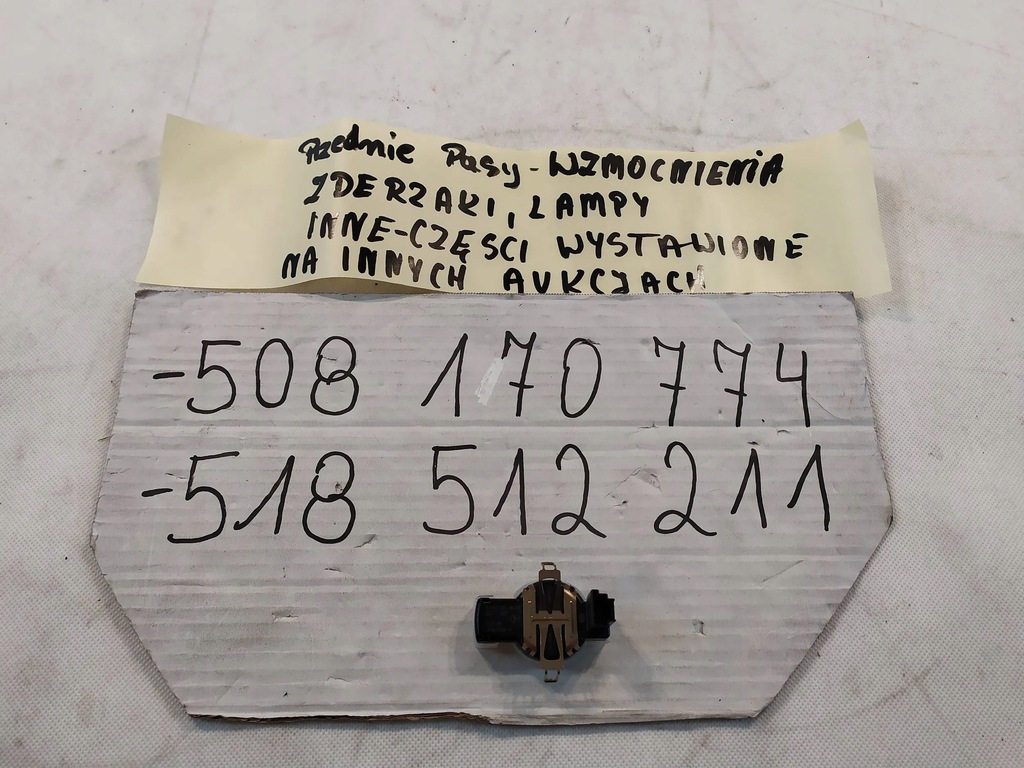 Przednie Pasy - WZMOCNIENIA
ZDERZAKI, LAMPY
INNE-CZĘSCI WYSTAWIONE
NA INNYCH AUKCJACH
-508 170 774
-518 512 211